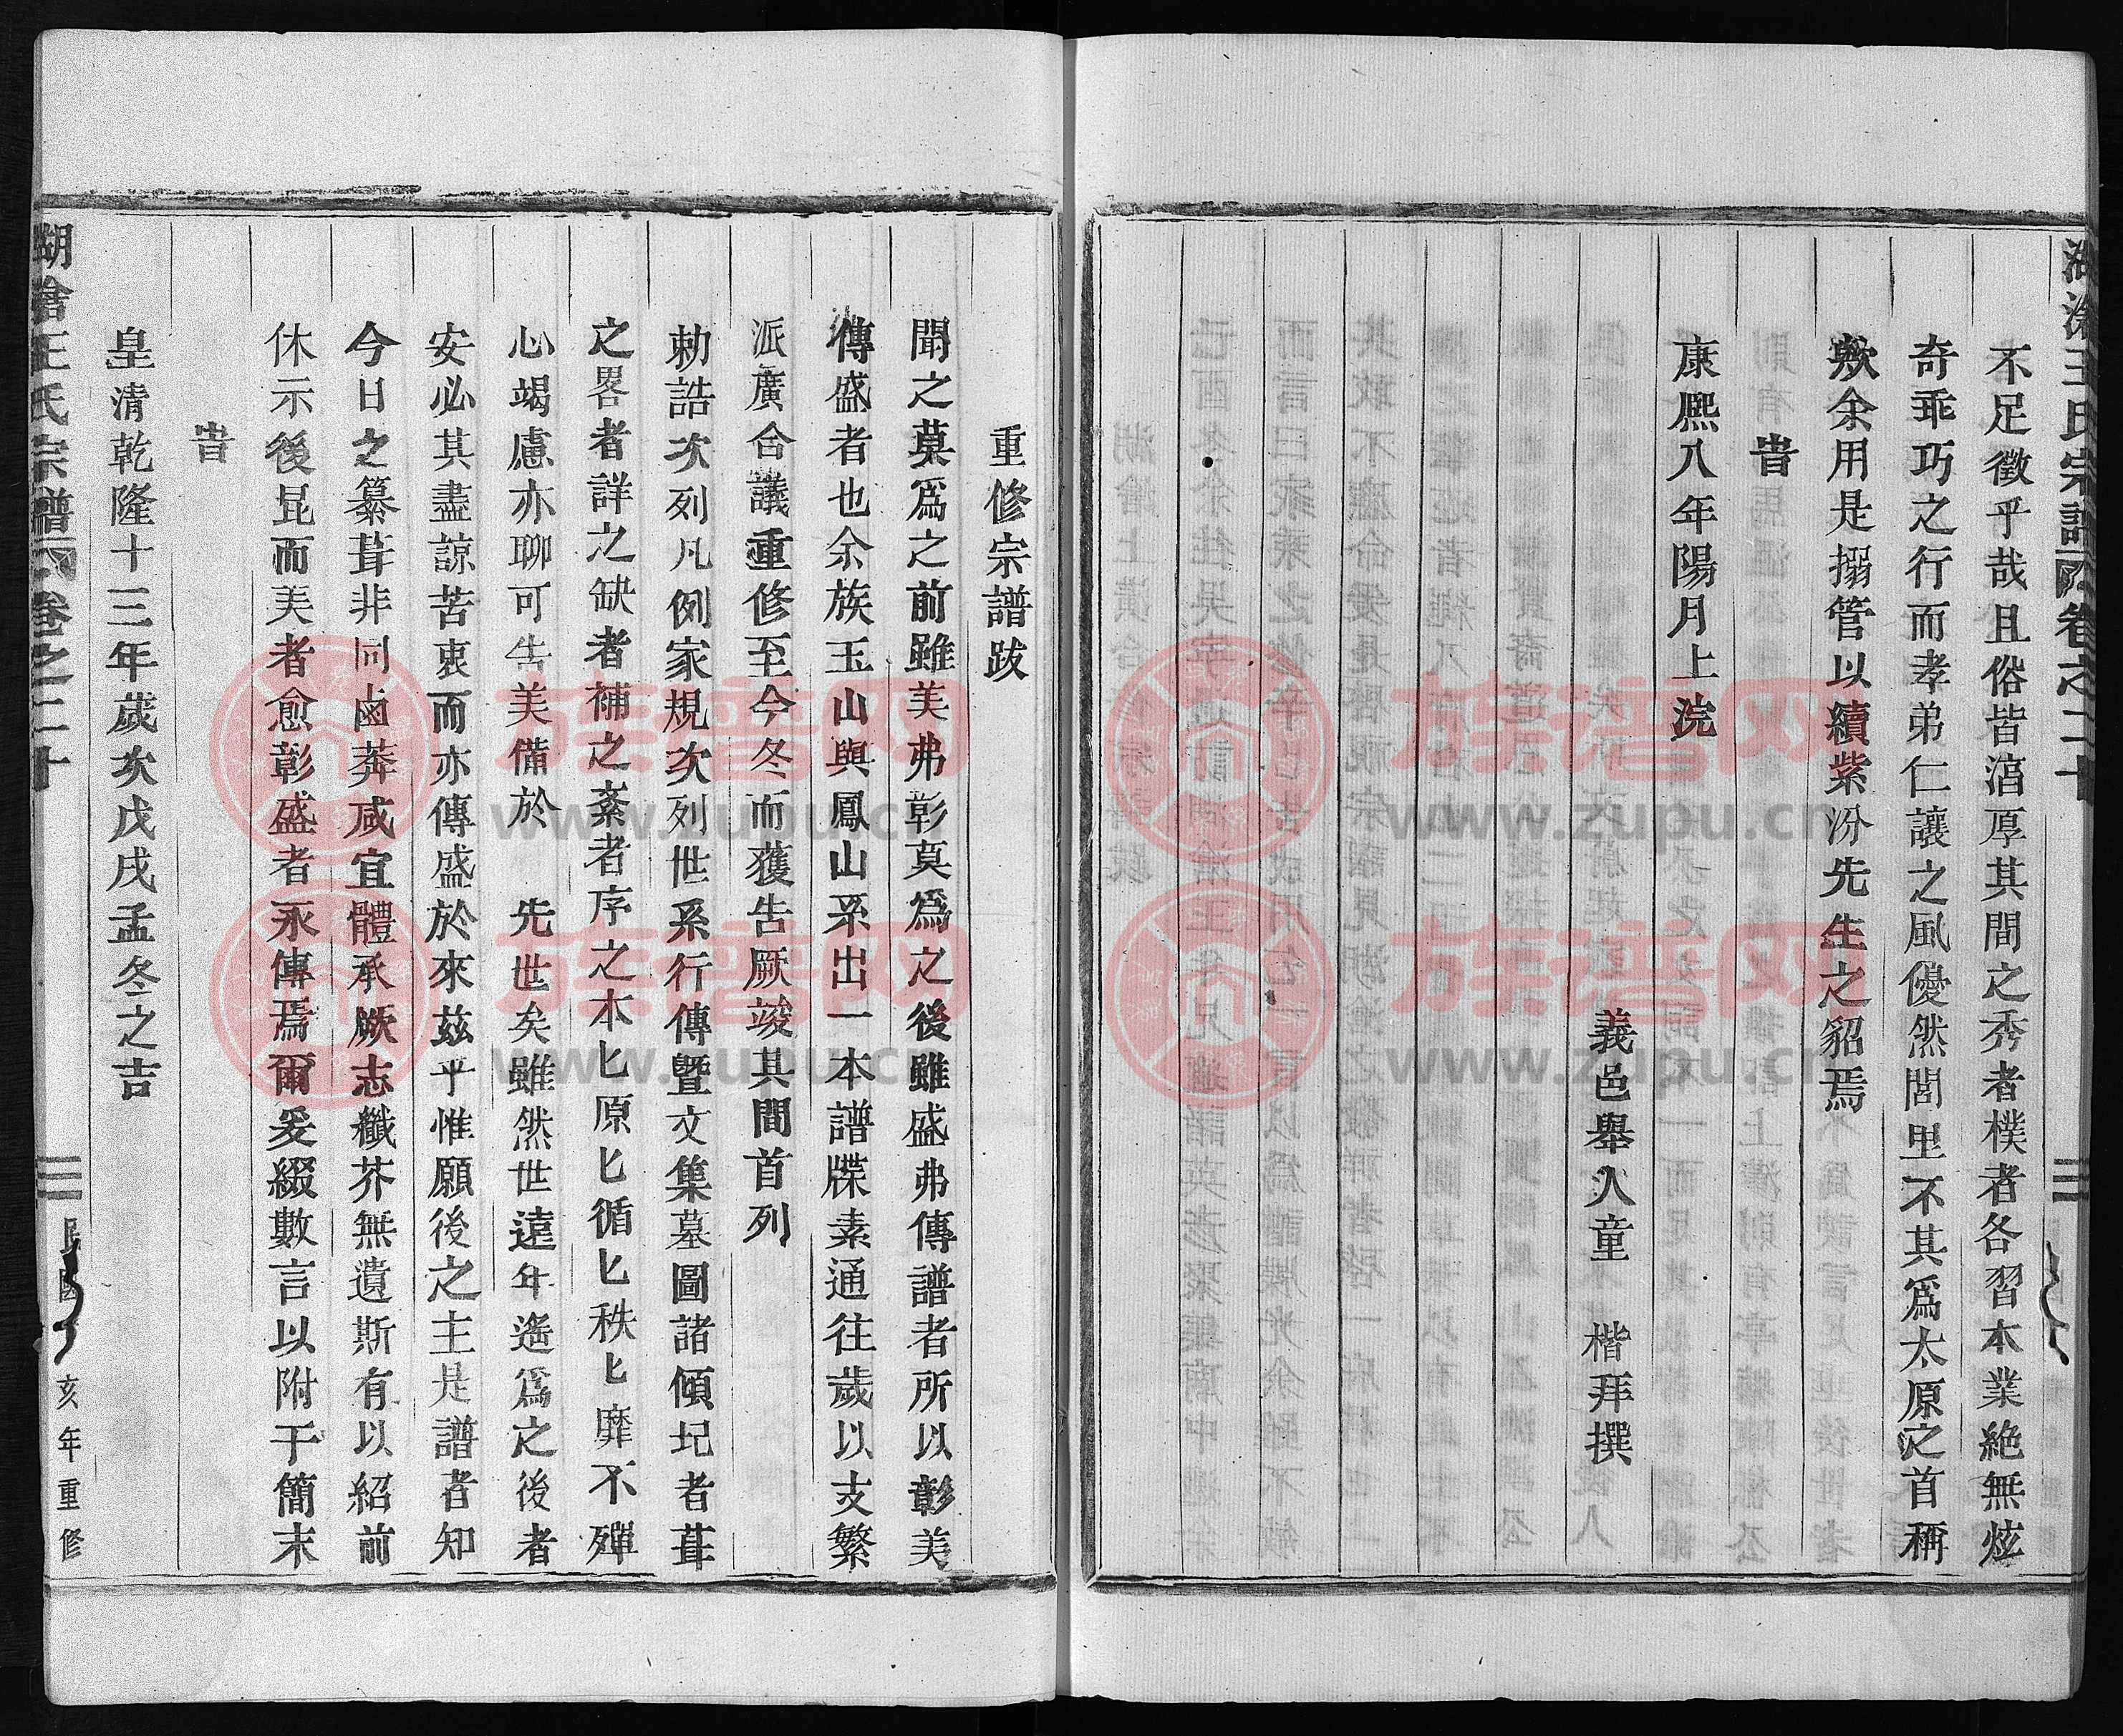 不足徵乎哉且俗皆湻厚其間之秀者樸者各習本業絶無炫
奇乖巧之行而孝弟仁讓之風優然閭里不其爲太原之首稱
歟余用是搦管以續紫汾先生之貂焉
旹
康熈八年陽月上浣
義邑舉人童 楷拜撰
重修宗譜跋
聞之莫爲之前雖美弗彰莫爲之後雖盛弗傳譜者所以彰美
傳盛者也余族玉山與鳳山系出一本譜牒素通往歲以支繁
派廣合議重修至今冬而獲吿厥竣其間首列
勅誥次列凡例家規次列世系行傳曁文集墓圖諸傾圮者葺
之畧者詳之缺者補之紊者序之本匕原匕循匕秩匕靡不殫
心竭慮亦聊可吿美備於 先世矣雖然世遠年遙爲之後者
安必其盡諒苦衷而亦傳盛於來茲乎惟願後之主是譜者知
今日之纂葺非同鹵莽咸宜體承厥志纖芥無遺斯有以紹前
休示後昆而美者愈彰盛者永傳焉爾爰綴數言以附于簡末
旹
皇清乾隆十三年歲次戊戌孟冬之吉
湖塗王氏宗譜 卷之二十
三
亥年重修
族谱网
www.zupu.cn